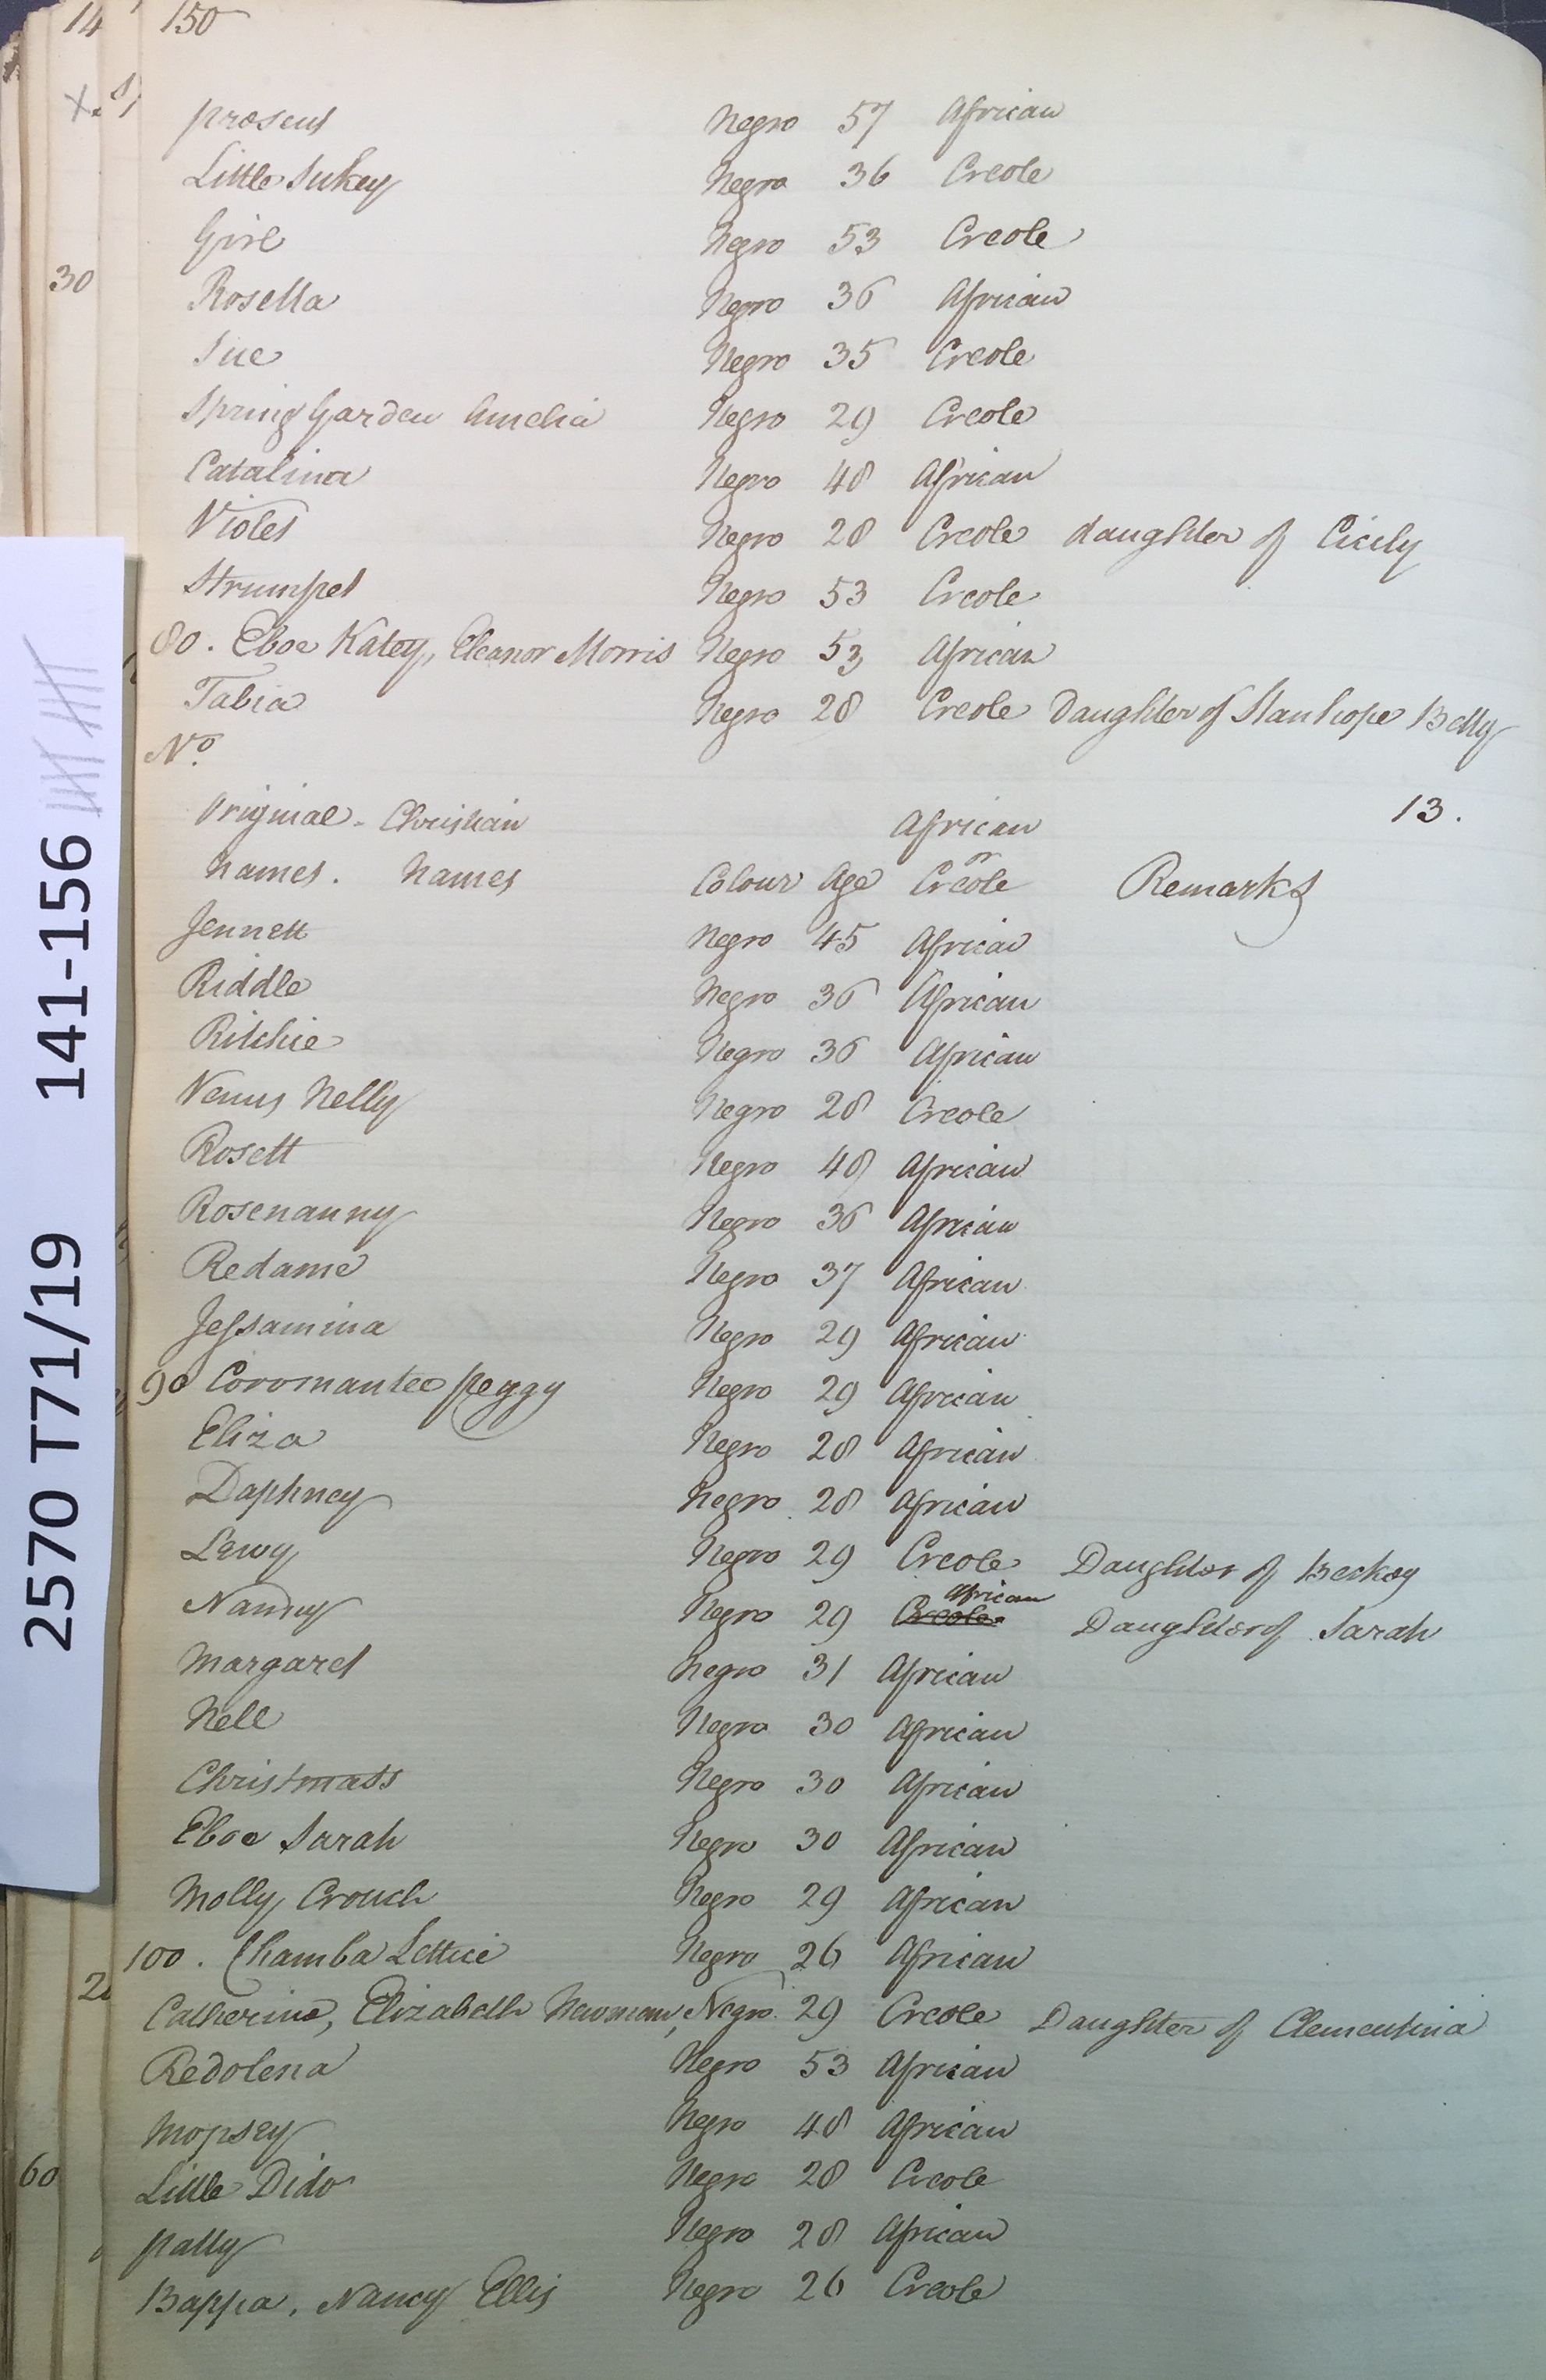 14 150
Present Negro 57 African
Little Sukey Negro 36 Creole
Girl Negro 53 Creole
30
Rosella Negro 36 African
Sue Negro 35 Creole
Spring Garden Amelia Negro 29 Creole
Catalina Negro 48 African
Violet Negro 28 Creole daughter of Cicily
Strumpet Negro 53 Creole
80. Eboe Katey, Eleanor Morris Negro 53 African
Tabia Negro 28 Creole Daughter of Stanhope Betty
No.
13.
Original - Christian African
Names. Names Colour Age or Creole Remarks
Jennett Negro 45 African
Riddle Negro 36 African
Ritchie Negro 36 African
Venus Nelly Negro 28 Creole
Rosett Negro 48 African
Rosenanny Negro 36 African
Redame Negro 37 African
Jessamina Negro 29 African
90 Coromantee Peggy Negro 29 African
Eliza Negro 28 African
Daphney Negro 28 African
Lewy Negro 29 Creole Daughter of Beckey
Nanny Negro 29 Creole African Daughter of Sarah
Margaret Negro 31 African
Nell Negro 30 African
Christmass Negro 30 African
Eboe Sarah Negro 30 African
Molly Crouch Negro 29 African
100. Chamba Lettice Negro 26 African
Catherine, Elizabeth Newman, Negro 29 Creole Daughter of Clementina
Redolena Negro 53 African
Mopsey Negro 48 African
60
Little Dido Negro 28 Creole
Pally Negro 28 African
Bappa, Nancy Ellis Negro 26 Creole
2570 T71/19 141-156